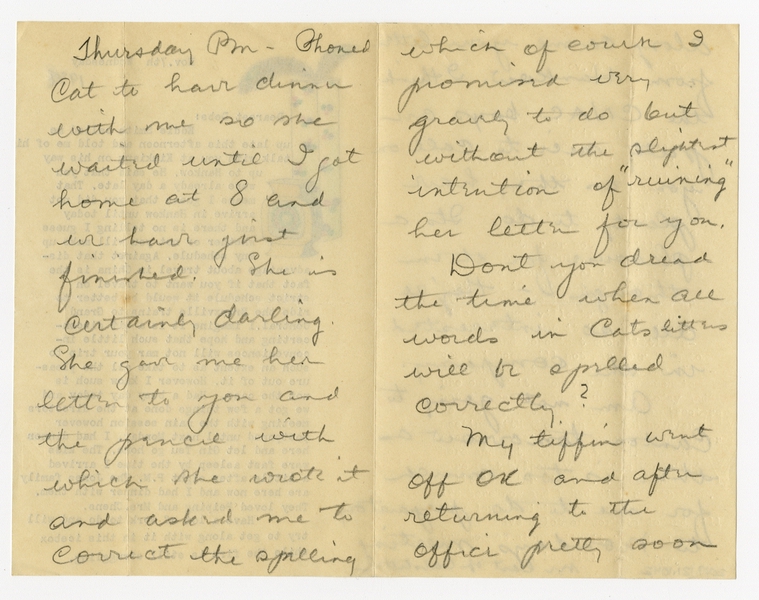 Thursday Pm - Phoned
Cat to have dinner
with me so she
waited until I got
home at 8 and
we have just
finished. She is
certainly darling.
She gave me her
letter to you and
the pencil with
which she wrote it
and asked me to
correct the spelling
which of course I
promised very
gravely to do but
without the slightest
intention of "ruining"
her letter for you.
Don't you dread
the time when all
words in Cats letters
will be spelled
correctly?
My tiffin went
off OK and after
returning to the
office pretty soon